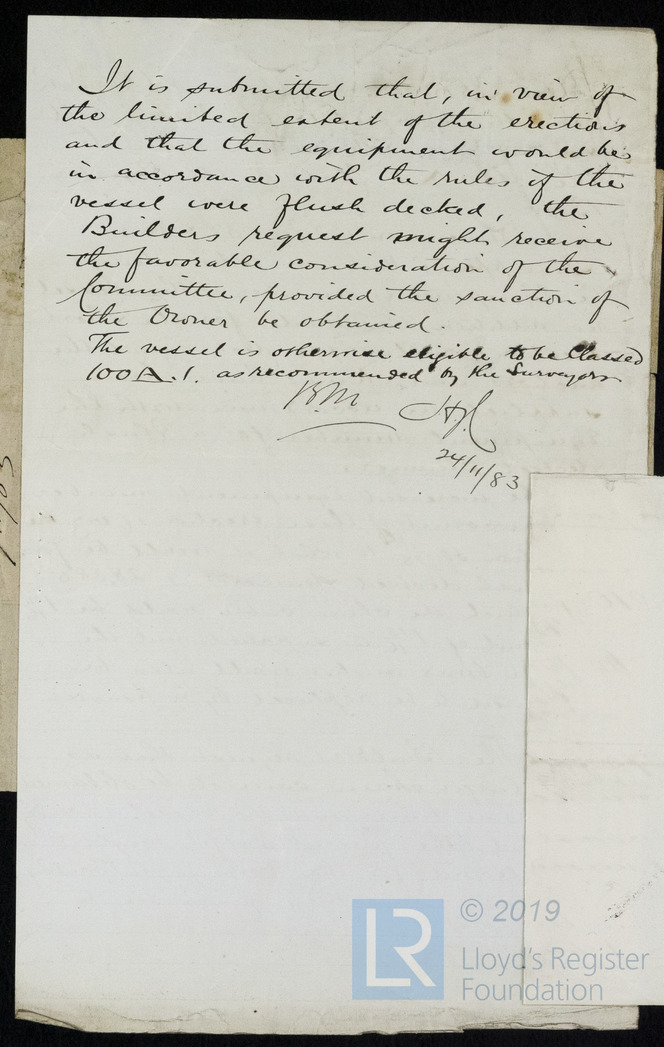 It is submitted that, in view of
the limited extent of the erections
and that the equipment would be
in accordance with the rules if the
vessel were flush decked, the
Builders request might receive
the favorable consideration of the
Committee, provided the sanction of
the Owner be obtained.
The vessel is otherwise eligible to be Classed
100 A.1. as recommended by the Surveyors
B.M
24/11/83
© 2019
LR
Lloyd's Register
Foundation